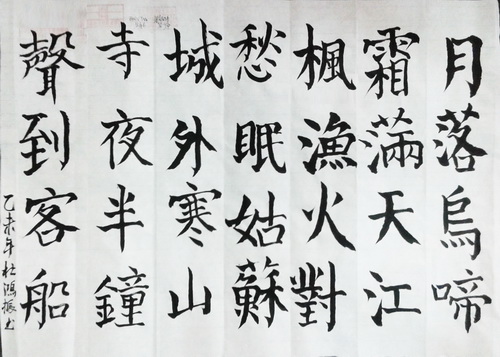 月落烏啼
霜滿天江
楓漁火對
愁眠姑蘇
城外寒山
寺夜半鐘
聲到客船
乙未年杜鴻振書